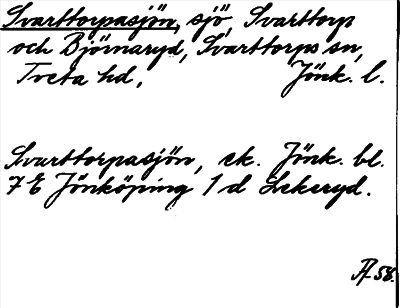 Svarttorpasjön, sjö, Svarttorp
och Björnaryd, Svarttorps sn,
Tveta hd, Jönk. l.
Svarttorpasjön, ek. Jönk. bl.
7 E Jönköping 1 d Lekeryd.
58.